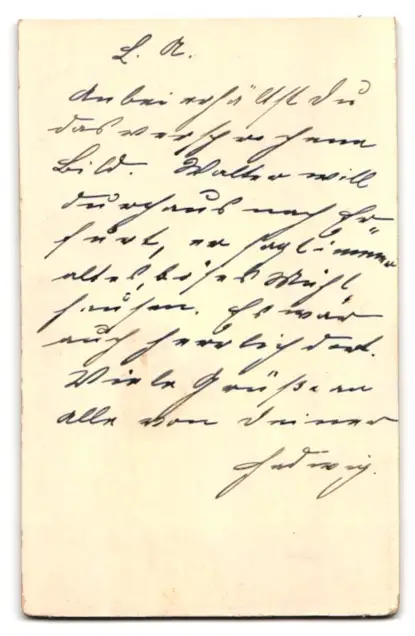 L. A.
Anbei erhältst Du
das versprochene
Bild. Walter will
durchaus nach Er
furt, er sagt immer
altes, böses Mühl
hausen. Es war
auch herrlich dort.
Viele Grüße an
alle von Deiner
Hedwig.